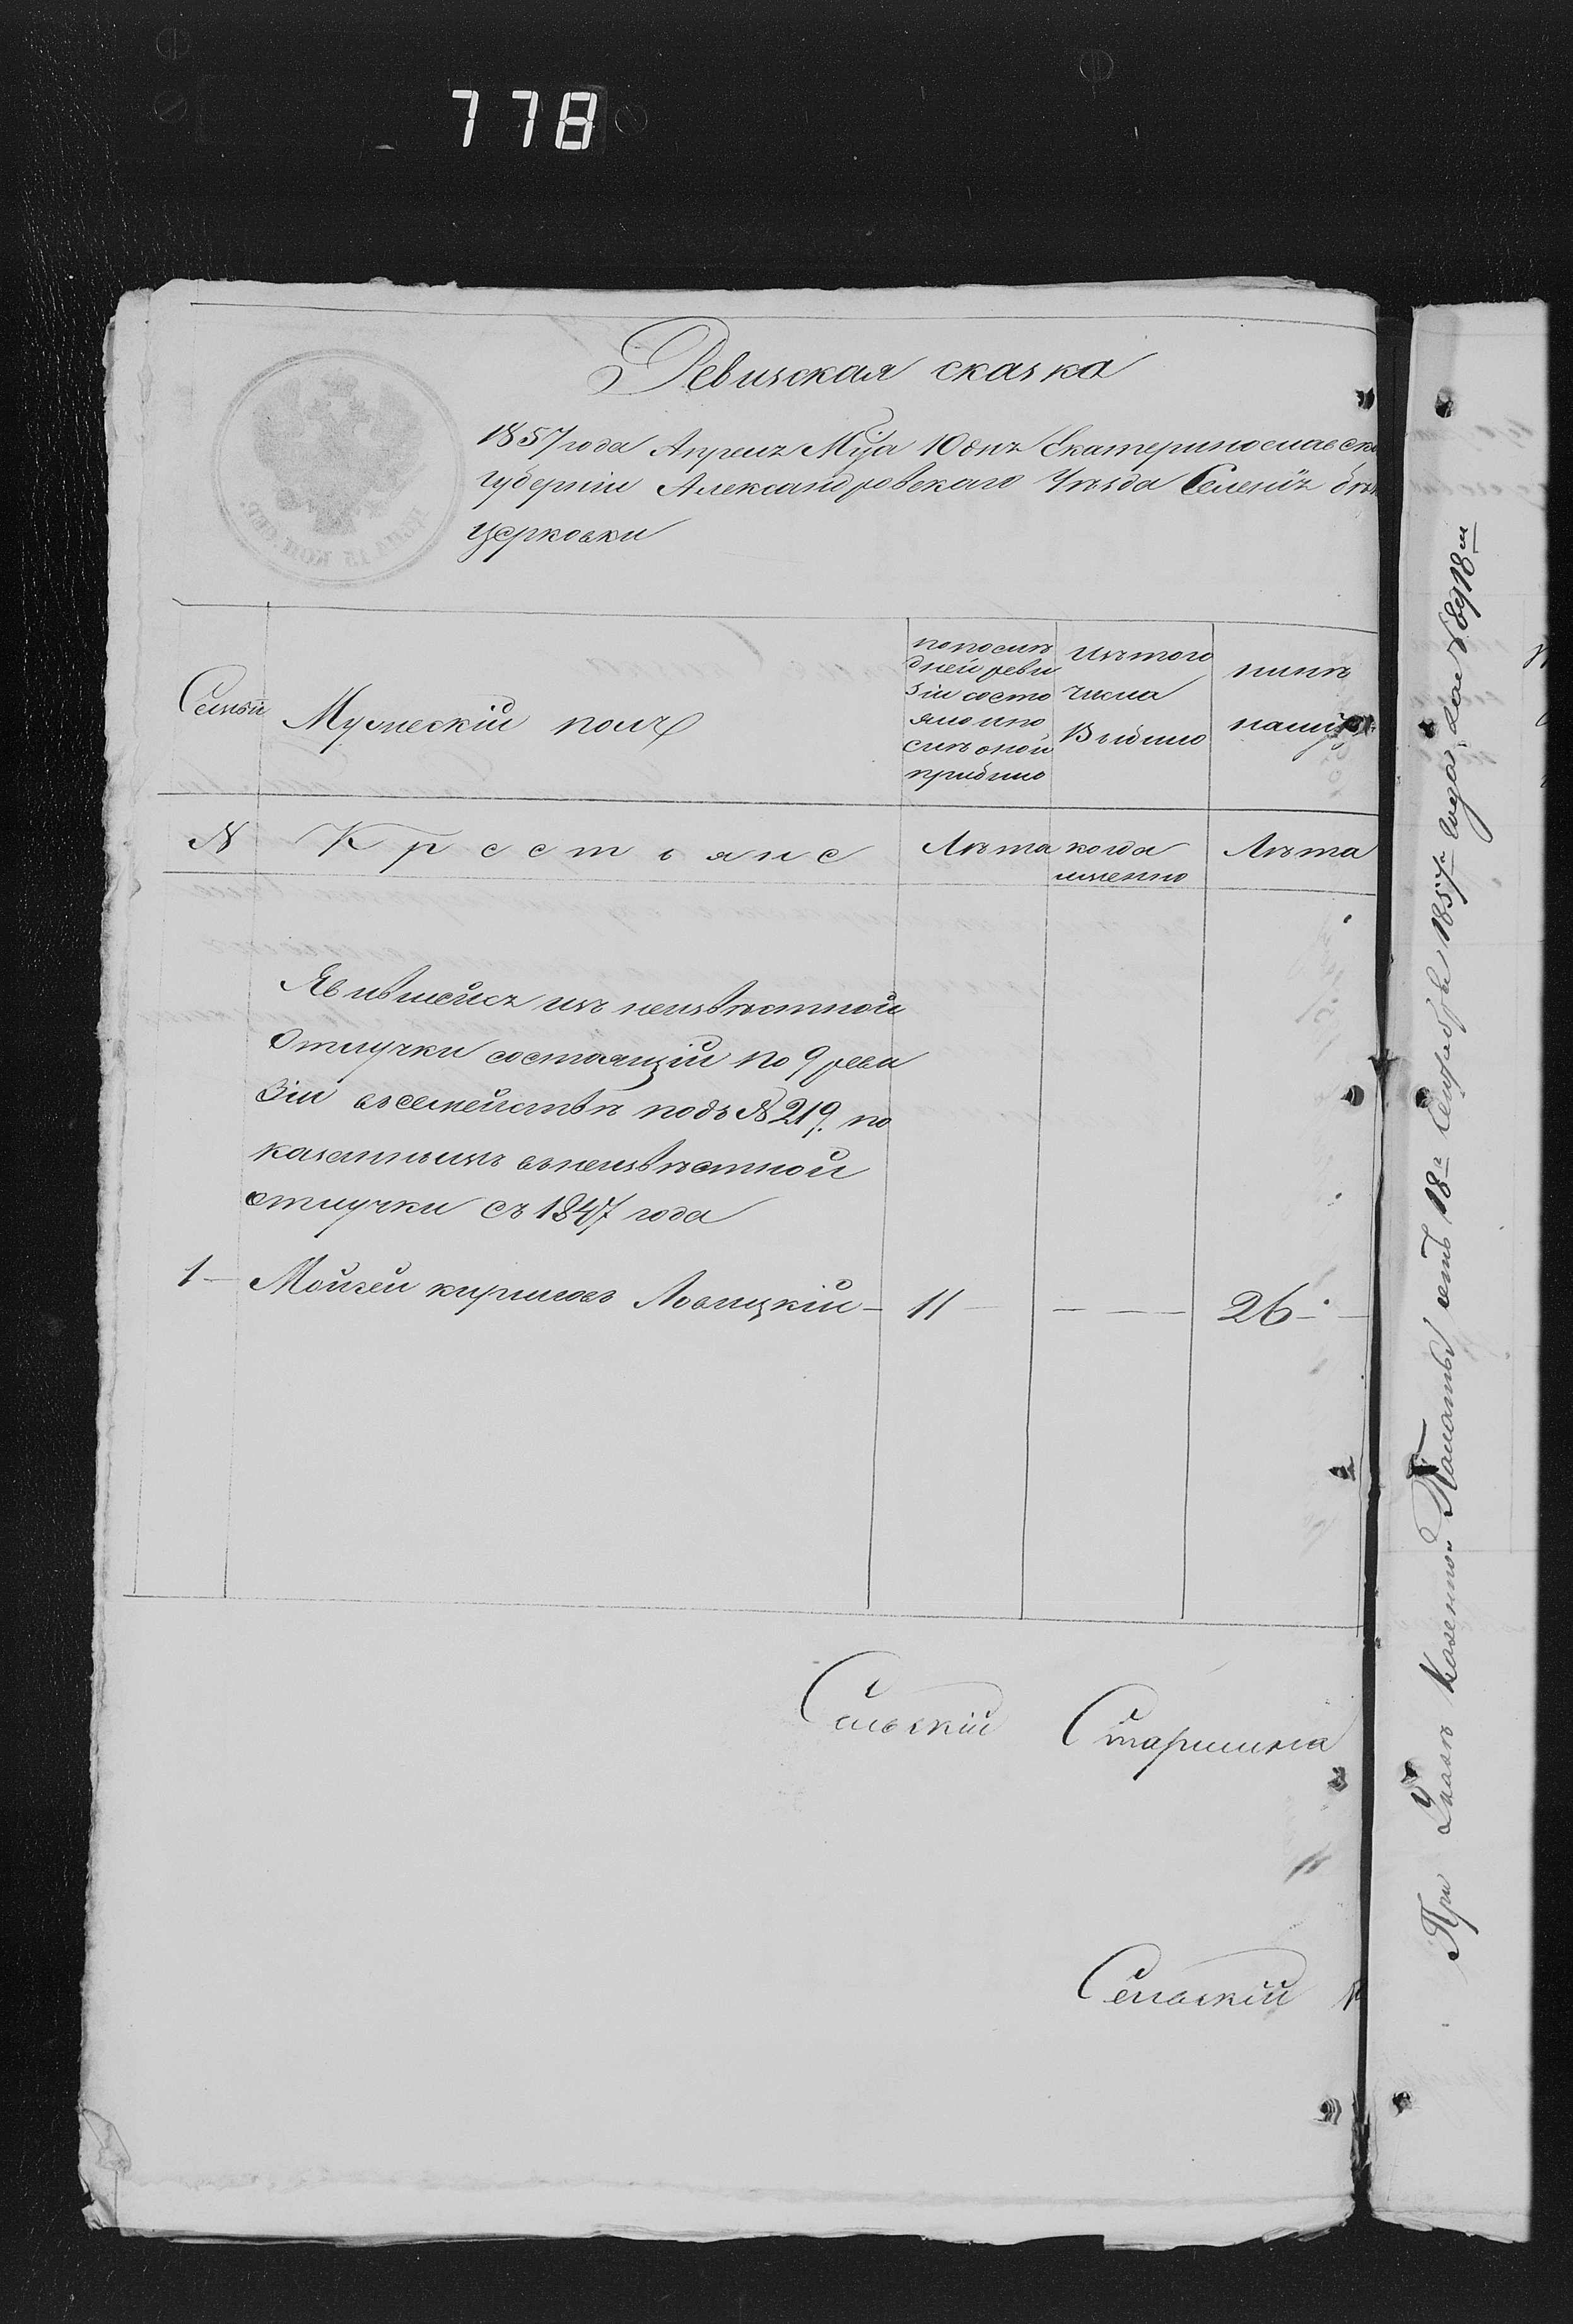 778
Ревизская сказка
1857 года Апреля М-ца 10 дня Екатеринославско
губернии Александровскаго Уѣзда Селенія бѣл
церковки
КОП. СЕР.
Семьи
Мужескій полъ
попослѣ
дней реви
зіи состо
яло ипо
слѣ оной
прибыло
изътого
числа
Выбыло
нынѣ
налицо
№ Крестьяне
Лѣта
когда
именно
Лѣта
Явившейся изъ неизвѣстной
Отлучки состоящій по 9 реви
зіи всемействѣ подъ № 219. по
казаннымъ внеизвѣстной
отлучки съ 1847 года
1 — Мойзей кириловъ Ловицкій — 11 — — — 26 —
Сельскій Старшина
Сельскій
При Указѣ Казенной Палаты отъ 18го Сентября 1857го года за №